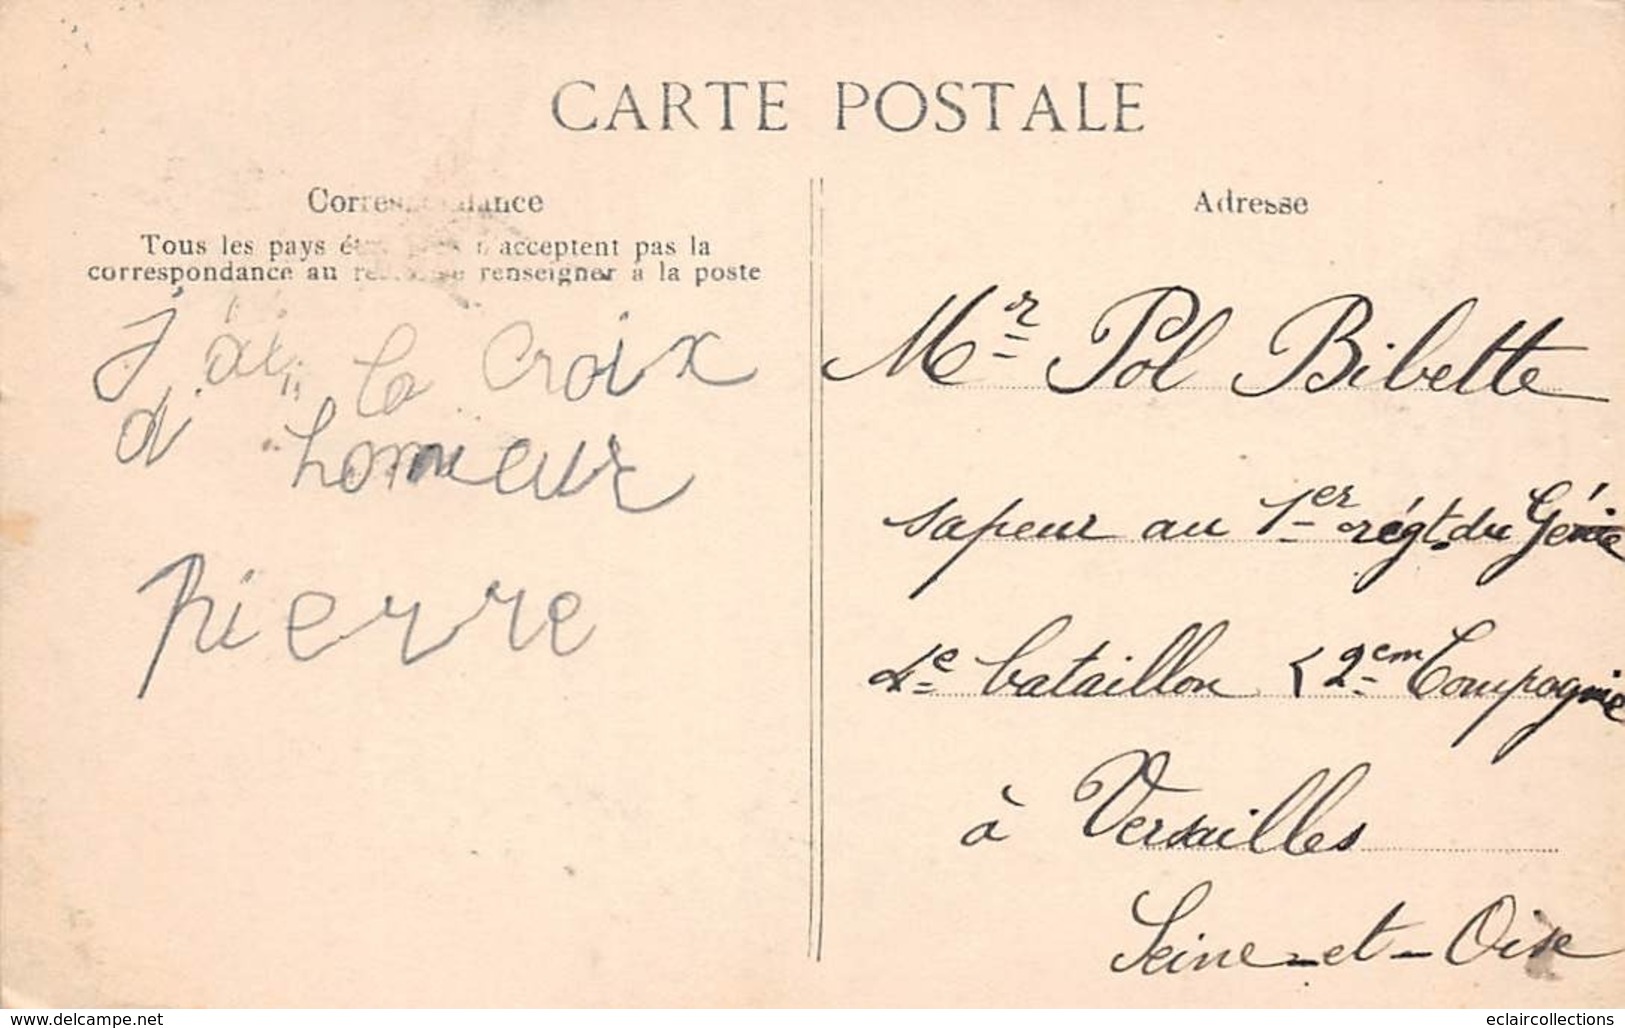 CARTE POSTALE
Correspondance
Tous les pays étrangers n'acceptent pas la
correspondance au recto, se renseigner à la poste
J'ai la Croix
d'honneur
Pierre
Adresse
Mr Pol Bibette
sapeur au 1er régt. du Génie
4e bataillon 2em Compagnie
à Versailles
Seine-et-Oise
www.delcampe.net
eclaircollections